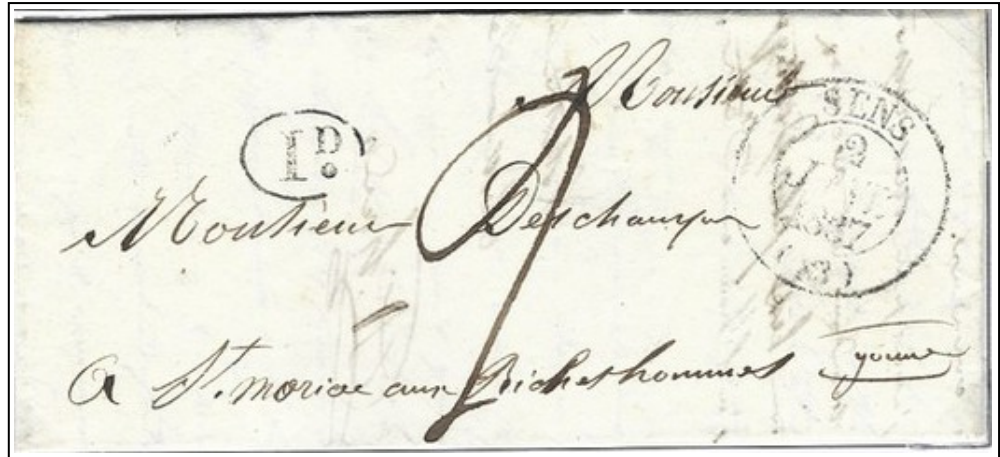 Monsieur
SENS
2
1837
1D.
Monsieur Deschamps
a St. morice aux Richeshommes yonne